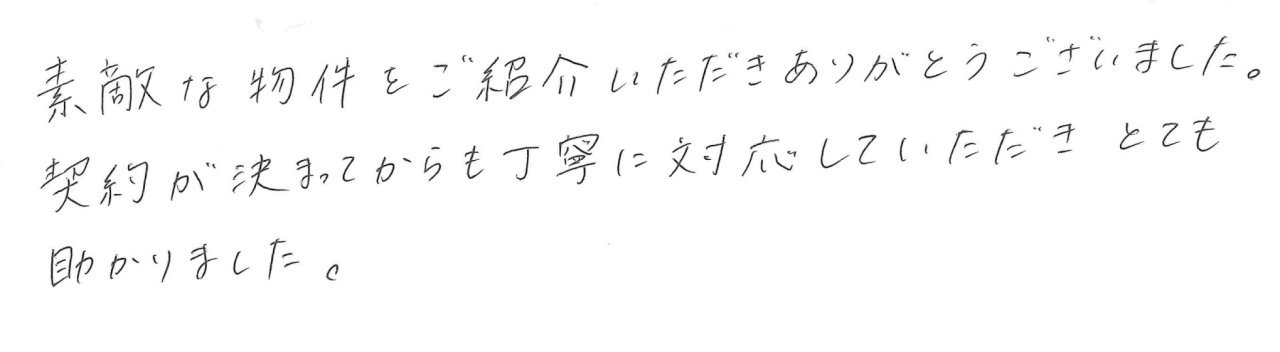 素敵な物件をご紹介いただきありがとうございました。
契約が決まってからも丁寧に対応していただき とても
助かりました。